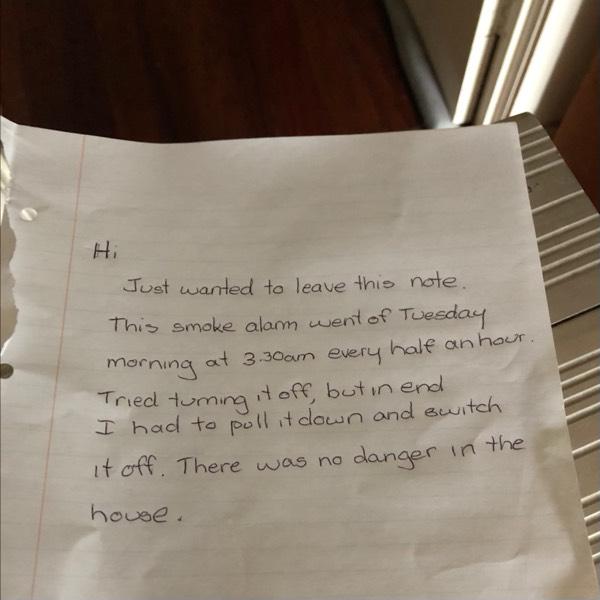 Hi
Just wanted to leave this note.
This smoke alarm went of Tuesday
morning at 3.30am every half an hour.
Tried turning it off, but in end
I had to pull it down and switch
it off. There was no danger in the
house.